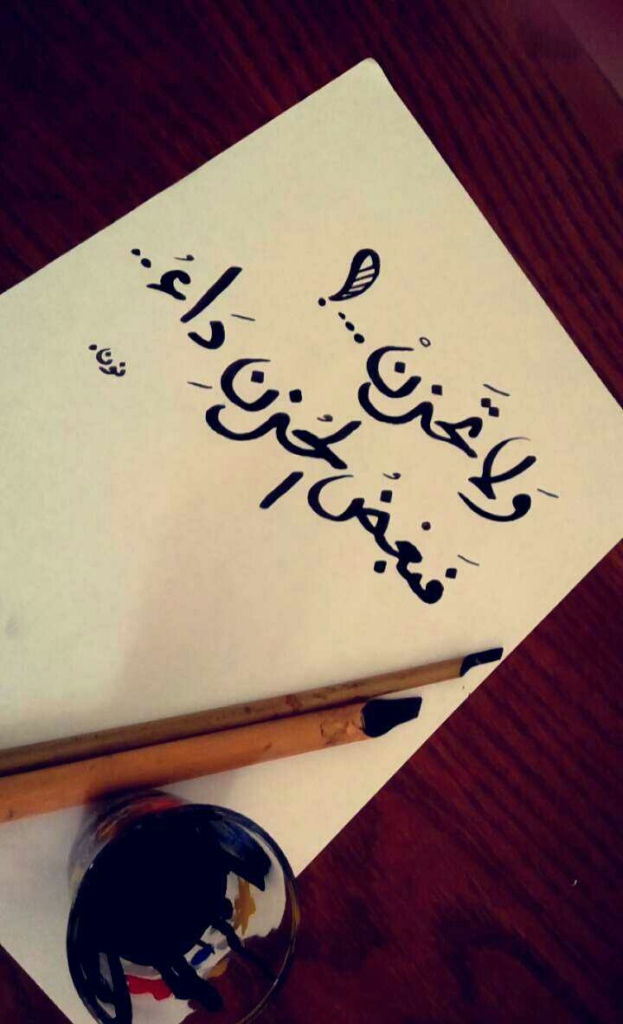 وَلَا تَحزنْ...!
فَبعضُ الحُزنِ دَاءُ..
نون.